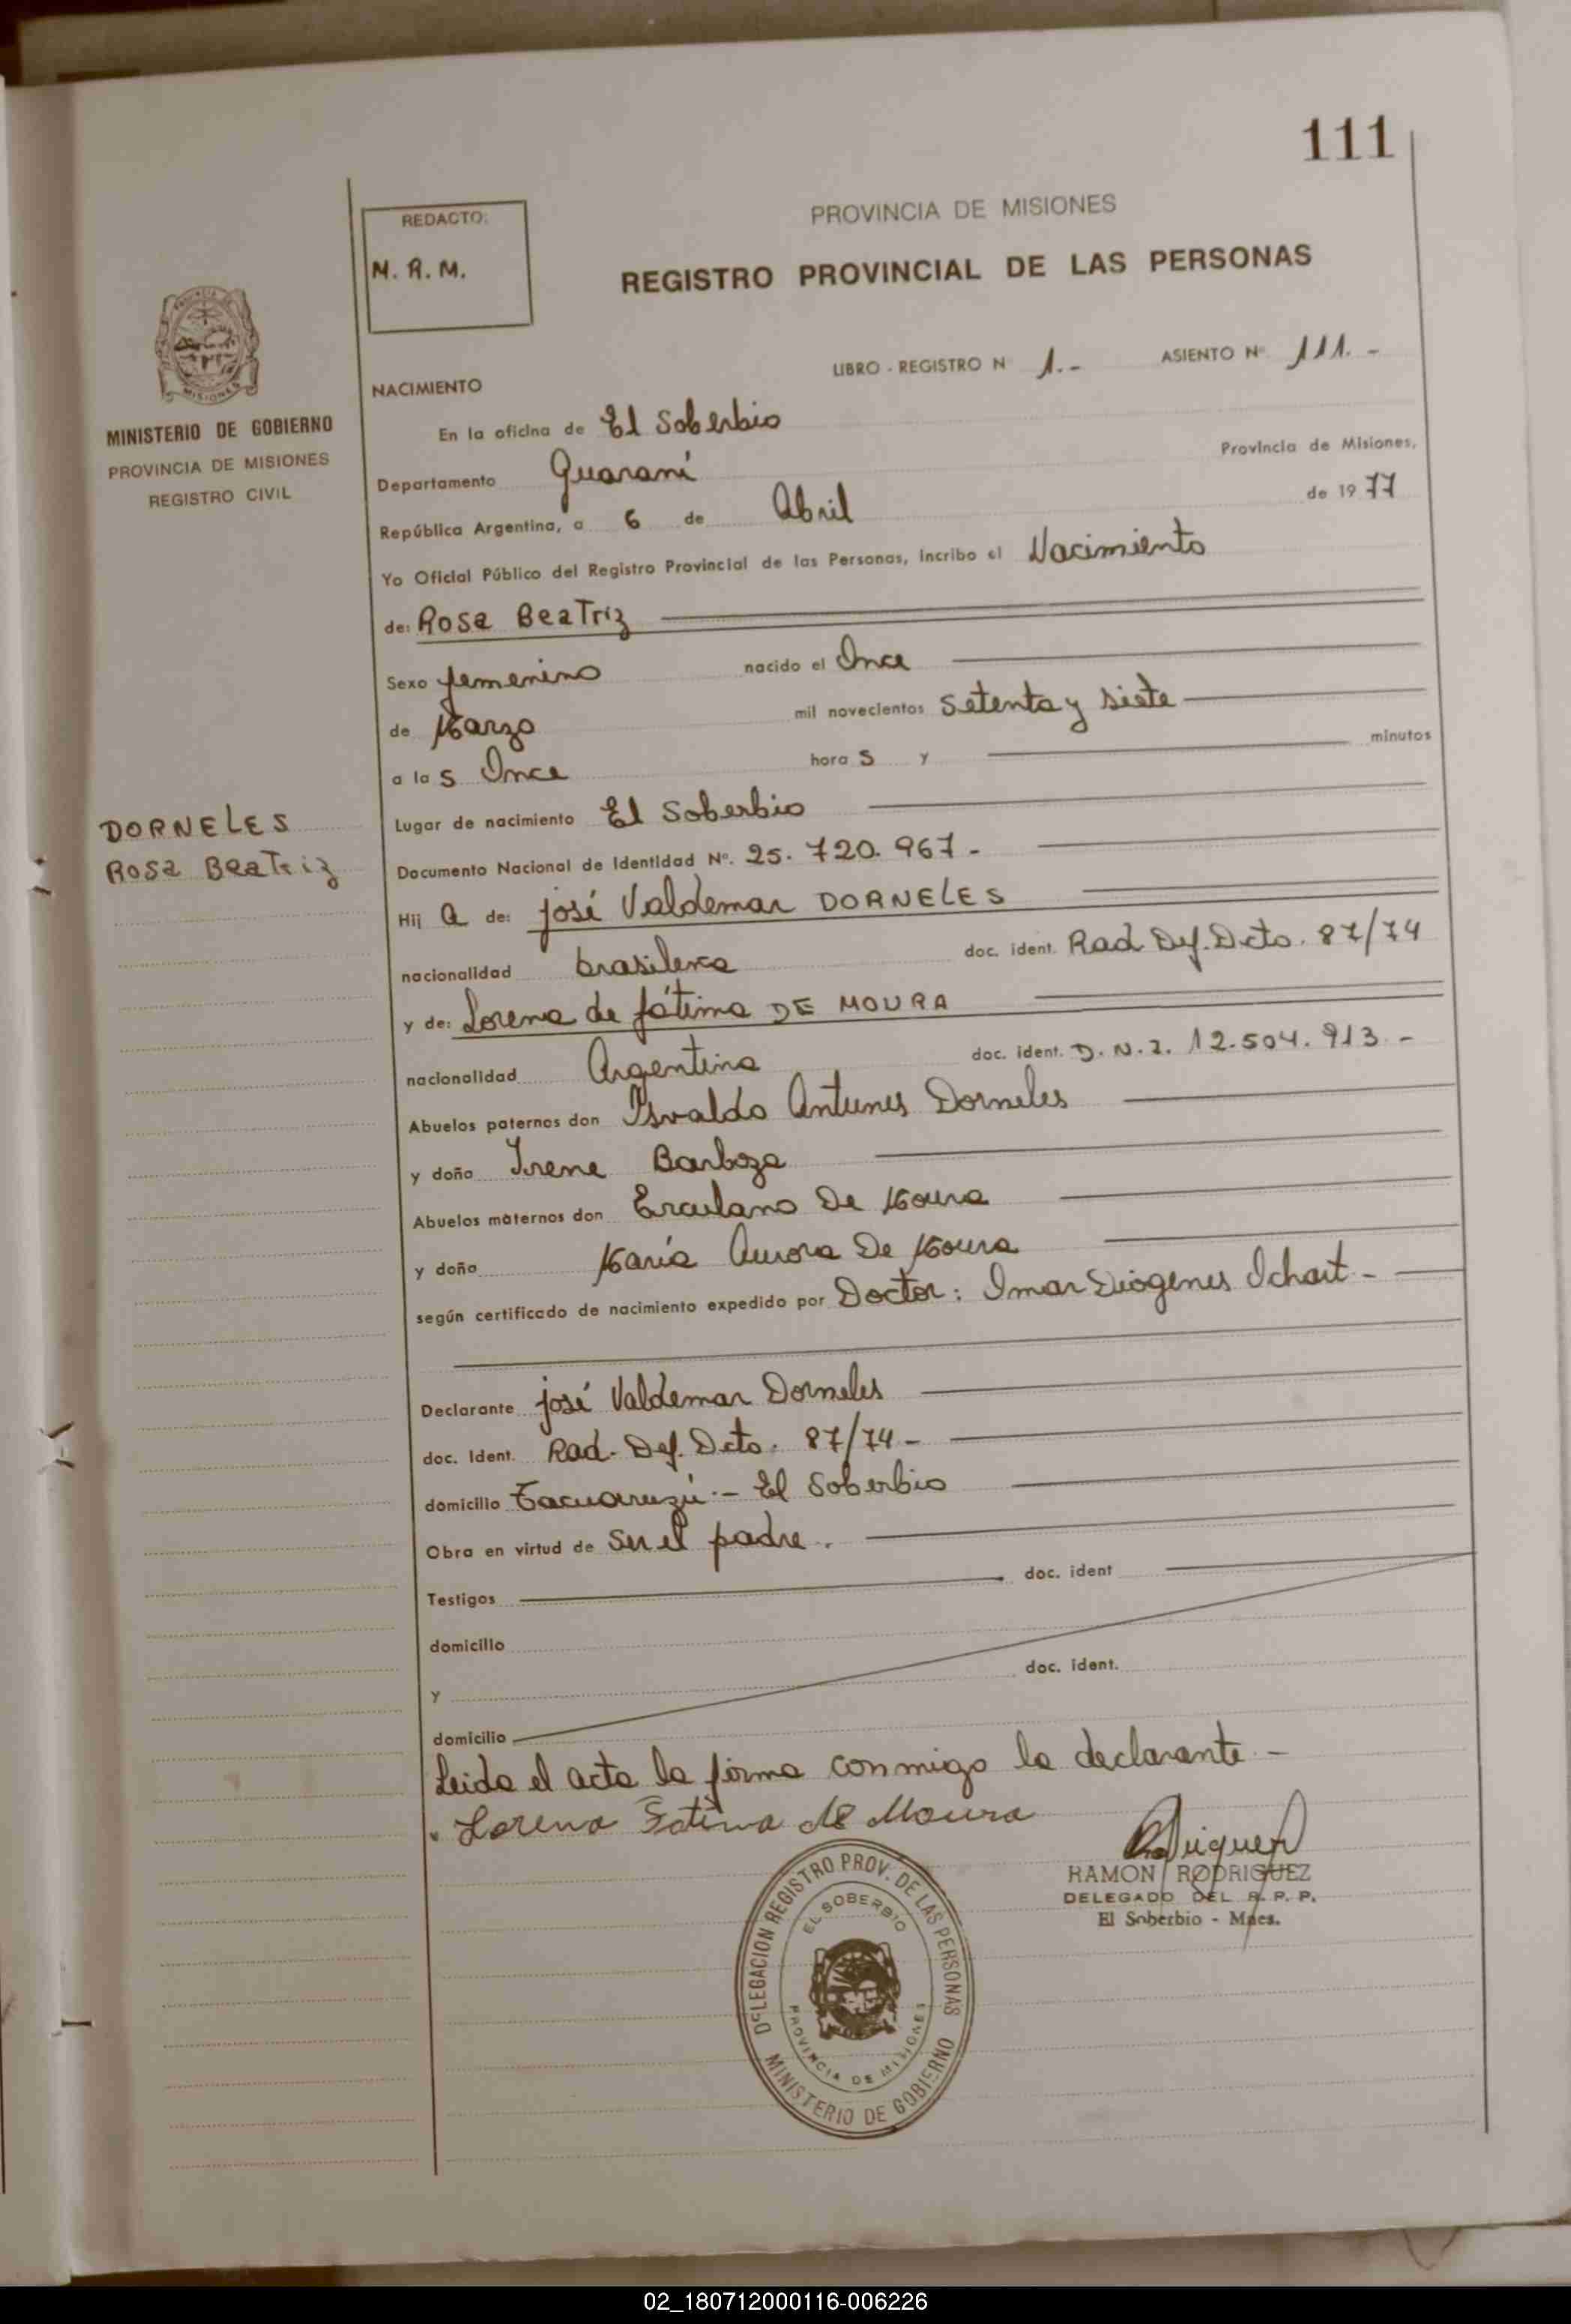 111
REDACTO:
M. R. M.
PROVINCIA DE MISIONES
REGISTRO PROVINCIAL DE LAS PERSONAS
MISIONES
MINISTERIO DE GOBIERNO
PROVINCIA DE MISIONES
REGISTRO CIVIL
NACIMIENTO
LIBRO - REGISTRO Nº 1.- ASIENTO Nº 111.-
En la oficina de El Soberbio
Departamento Guaraní Provincia de Misiones,
República Argentina, a 6 de Abril de 1977
Yo Oficial Público del Registro Provincial de las Personas, incribo el Nacimiento
de: Rosa Beatriz
Sexo femenino nacido el Once
de Marzo mil novecientos setenta y siete
a las Once horas y minutos
Lugar de nacimiento El Soberbio
DORNELES
ROSA BEATRIZ
Documento Nacional de Identidad Nº. 25.720.967-
Hij a de: José Valdemar DORNELES
nacionalidad brasilera doc. ident. Rad. Def. Dcto. 87/74
y de: Lorena de fátima DE MOURA
nacionalidad Argentina doc. ident. D.N.I. 12.504.913-
Abuelos paternos don Osvaldo Antunes Dorneles
y doña Irene Barboza
Abuelos maternos don Erculano De Moura
y doña María Aurora De Moura
según certificado de nacimiento expedido por Doctor: Omar Diógenes Ichart-
Declarante José Valdemar Dorneles
doc. Ident. Rad. Def. Dcto. 87/74-
domicilio Tacuaruzú.- El Soberbio
Obra en virtud de ser el padre.
Testigos doc. ident
domicilio
y doc. ident.
domicilio
Leida el acta la firma conmigo la declarante.-
Lorena Fatima de Moura
RAMON RODRIGUEZ
DELEGADO DEL R. P. P.
El Soberbio - Mnes.
DELEGACION REGISTRO PROV. DE LAS PERSONAS
EL SOBERBIO
PROVINCIA DE MISIONES
MINISTERIO DE GOBIERNO
02_180712000116-006226